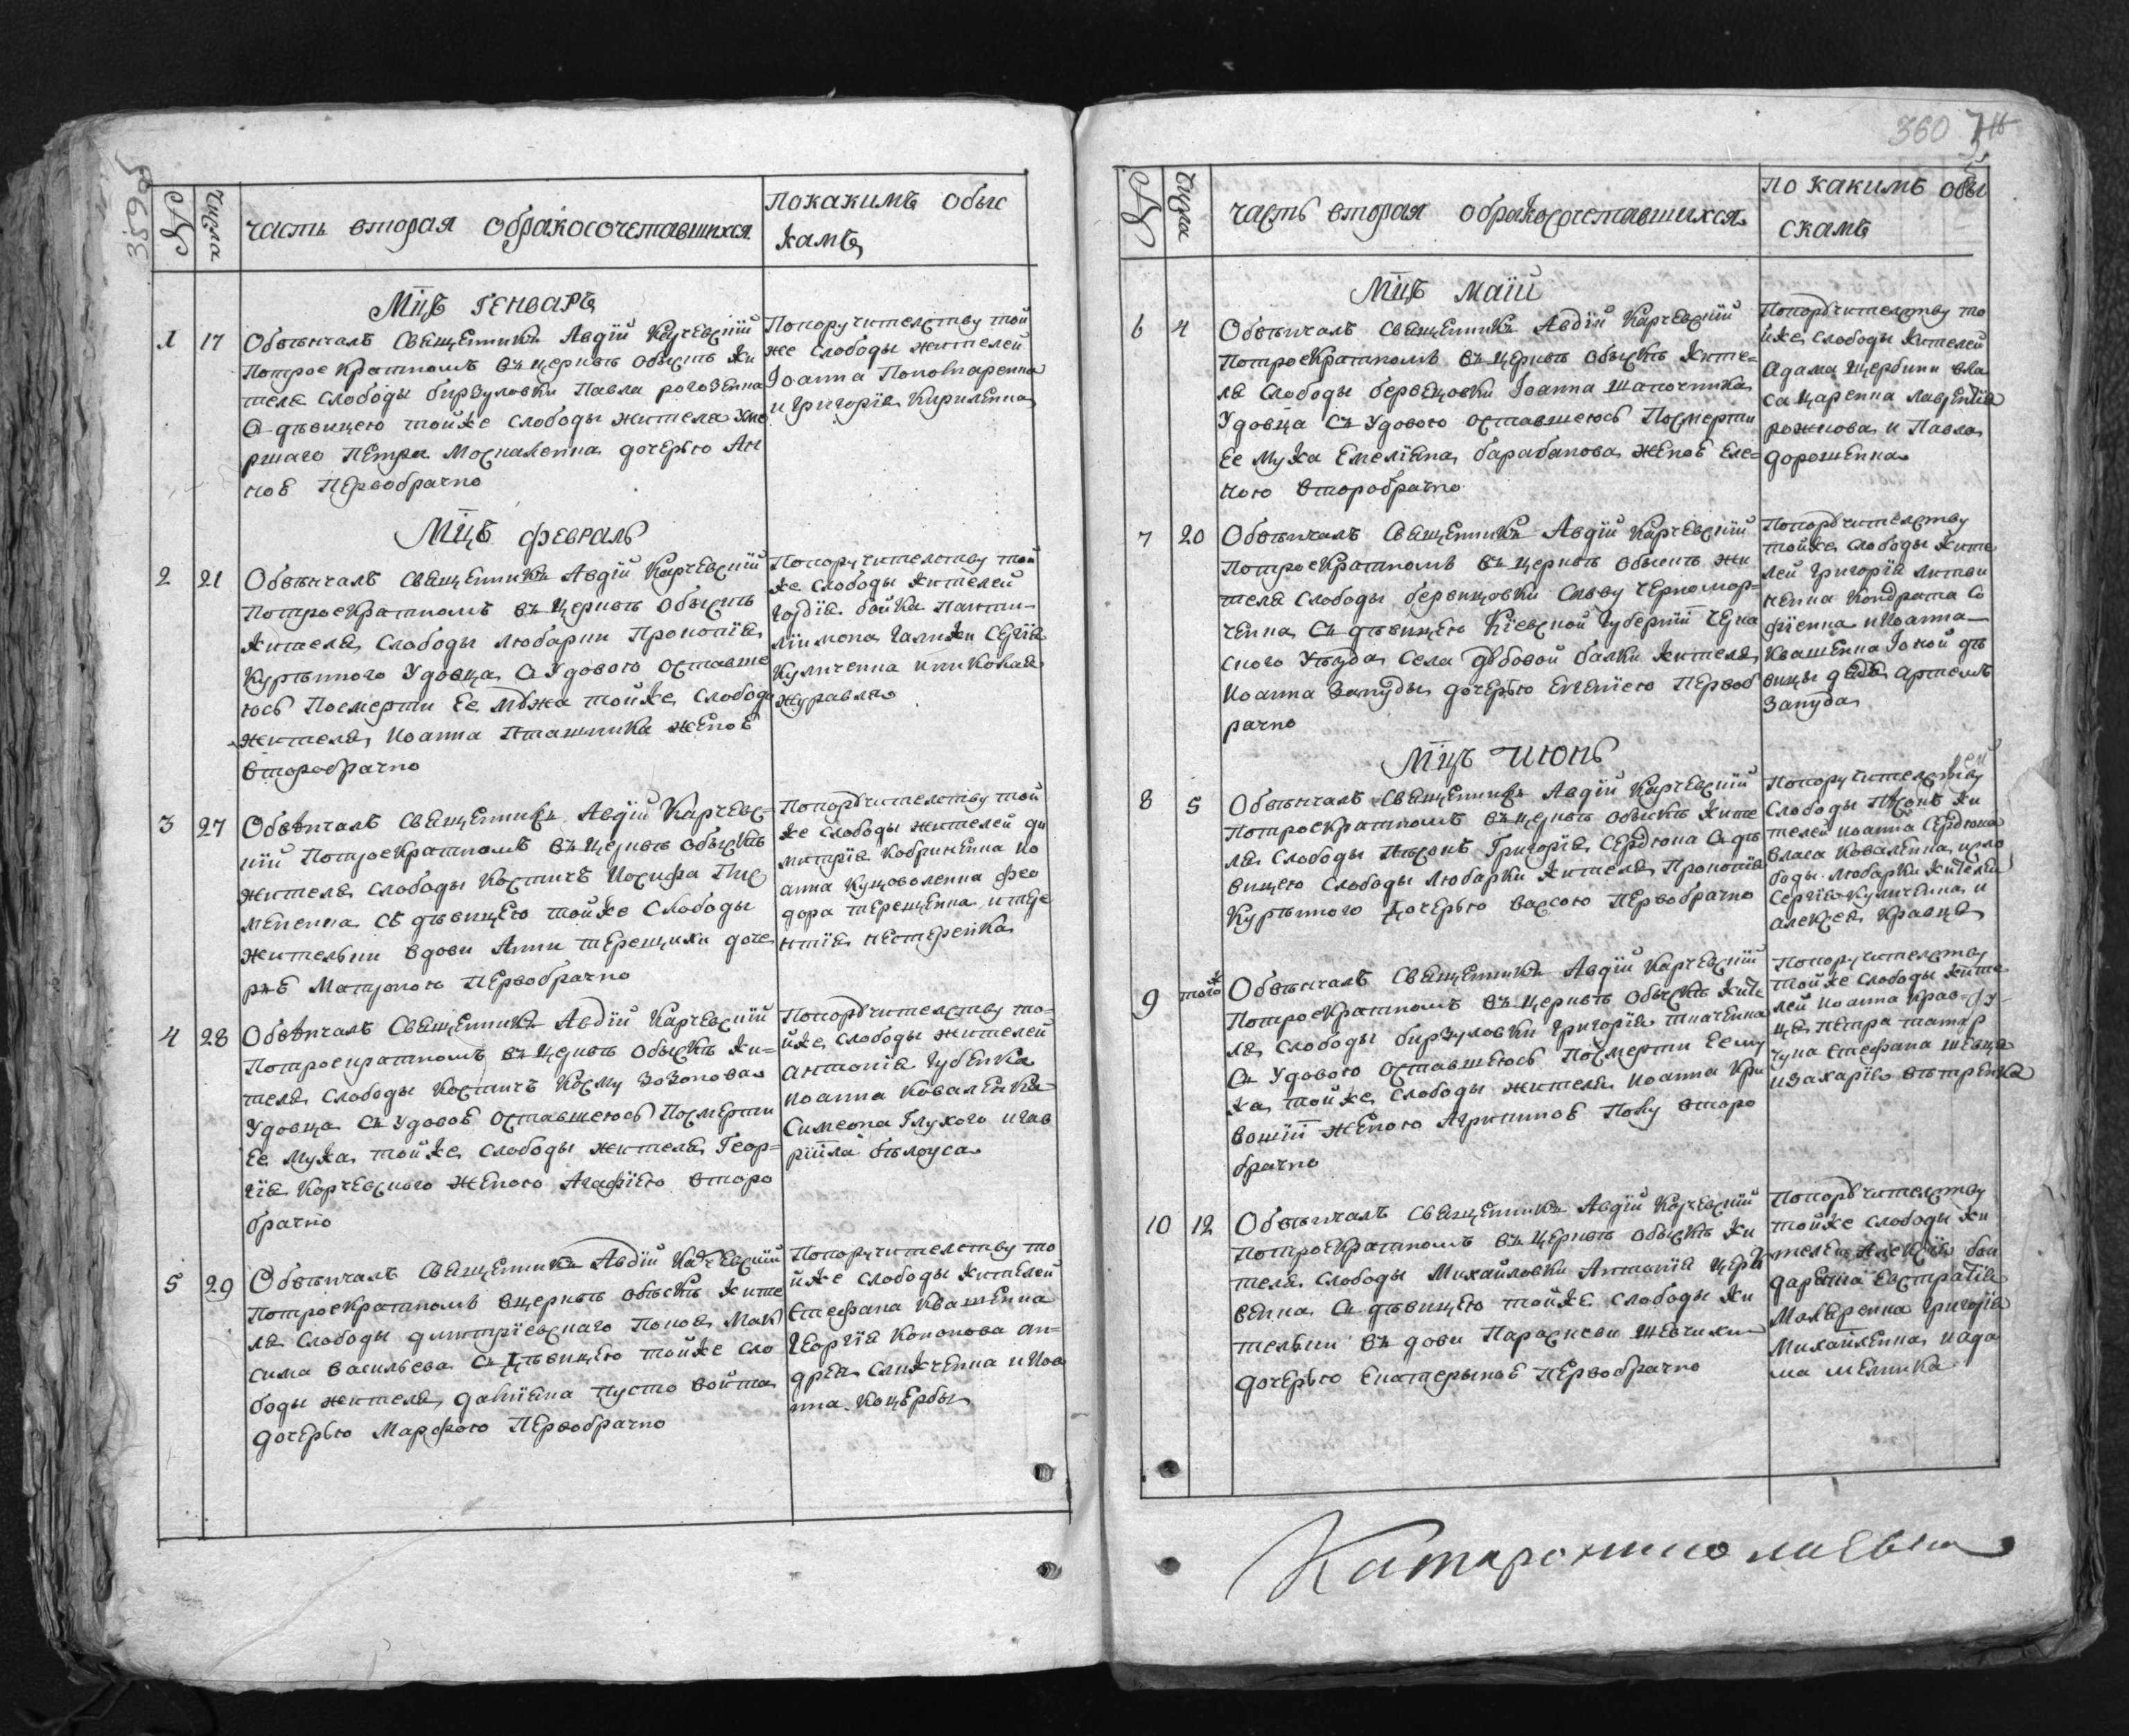 359 об
№
Числа
часть вторая обракосочетавшихся
покакимъ обыс
камъ
Мцъ генварь
1 17
Обвѣнчалъ Священникъ Авдій Карчевскій
Потрое Кратномъ въ церквѣ обыскѣ жи
теля слободы бирзуловки Павла рогозена
съ дѣвицею тойже слободы жителя уме
ршаго Петра Москаленка дочерью Ан
ною Первобрачно
Попоручителству той
же слободы жителей
Іоанна Понопаренка
и григорія Кириленка
Мцъ февраль
2 21
Обвѣнчалъ Священникъ Авдій Карчевскій
Потроекратномъ въ церквѣ обыскѣ
жителя слободы любарки Прокопія
Курѣнного Удовца съ Удовою оставше
юсь Посмерти Ее мужа тойже слободы
жителя Иоанна Пташника женоѣ
второбрачно
Попоручителству той
же слободы жителей
гордія бойка Панти-
ліимона галижи Сергія
Куличенка иниколая
журавля
3 27
Обвѣнчалъ Священникъ Авдій Карчевс-
кій Потроекратномъ въ церквѣ обыскѣ
жителя слободы Костичъ Иосифа Пис
мененка съ дѣвицею тойже слободы
жителки вдови Анни терещихи доче
рьѣ Матроною Первобрачно
Попоручителству той
же слободы жителей ди
митрія Кобриненка ио
анна Куцоволенка фео
дора терещенка итере
нтія нестеренка
4 28
Обвѣнчалъ Священникъ Авдій Карчевскій
Потроекратномъ въ церквѣ обыскѣ жи-
теля слободы Костичъ Косму Зозонова
Удовца съ Удовоѣ оставшеюсь Посмерти
Ее Мужа тойже слободы жителя Геор-
гія Корчевского женою Агафіею второ
брачно
Попоручителству то-
йже слободы жителей
антонія губенка
иоанна Коваленка
Симеона Глухого игав
ріила бѣлоуса
5 29
Обвѣнчалъ Священникъ Авдій Карчевскій
Потроекратномъ вцерквѣ обыскѣ жите
ля слободы димитріевскаго Попова Мак
сима васильева съ дѣвицею тойже сло
боды жителя даміяна пусто войта
дочерью Марфою Первобрачно
Попоручителству то
йже слободы жителей
Стефана Квашенка
георгія Кононова ан-
дрея слижченка и Иоа
нна Коцербы
360
№
Числа
часть вторая обракосочетавшихся
по какимъ обы
скамъ
Мцъ маій
6 4
Обвѣнчалъ Священникъ Авдій Карчевскій
Потроекратномъ въ церквѣ обыскѣ жите-
ля слободы бервецовки Іоанна шапочника
Удовца съ Удовою оставшеюсь Посмерти
Ее Мужа Емеліяна барабанова женоѣ Еле-
ною второбрачно
Попоручителству то
йже слободы жителей
адама щербини вла
са царенка лаврентія
рожнова и Павла
дорошенка
7 20
Обвѣнчалъ Священникъ Авдій Карчевскій
Потроекратномъ въ церквѣ обыскѣ жи
теля слободы бервицовки Савву черномор-
ченка съ дѣвицею Кіевской губерніи черка
ского Уѣзда села дубовой балки жителя
Иоанна Запуды дочерью Евгеніею Первоб
рачно
Попоручителству
тойже слободы жите
лей григорія литви
ненка Кондрата Со
фіенка иИоанна
Квашенка Іоной дѣ
вицы дядя артемъ
Запуда
Мцъ июнь
8 5
Обвѣнчалъ Священникъ Авдій Карчевскій
Потроекратномъ въ церквѣ обыскѣ жите
ля слободы Пѣсокъ Григорія Сердюка съ дѣ
вицею слободы любарки жителя Прокопія
Курѣнного дочерью вассою Первобрачно
Попоручителству
слободы пѣсокъ жи
телей иоанна Сердюка
власа Коваленка исло
боды любарки жителей
Сергія Куличенка и
алексея Кравца
9 тогож
Обвѣнчалъ Священникъ Авдій Карчевскій
Потроекратномъ въ церквѣ обыскѣ жите
ля слободы бирзуловки григорія ткаченка
съ Удовою оставшеюсь Посмерти Еему
жа тойже слободы жителя Иоанна Кри
вошіи женою Агрипиноѣ Полу второ
брачно
Попоручителству
тойже слободы жите
лей иоанна Крав-
ця петра татар
чука стефана шевца
изахарія вѣтренка
10 12
Обвѣнчалъ Священникъ Авдій Карчевскій
Потроекратномъ въ церквѣ обыскѣ жи
теля слободы Михайловки Антонія церко
венка съ дѣвицею тойже слободы жи
телки въ дови Параскеви шевчихи
дочерью Екатериноѣ Первобрачно
Попоручителству
тойже слободы жи
телей алексія бон
даренка Евстратія
Макаренка григорія
Михайленка иада
ма мелника